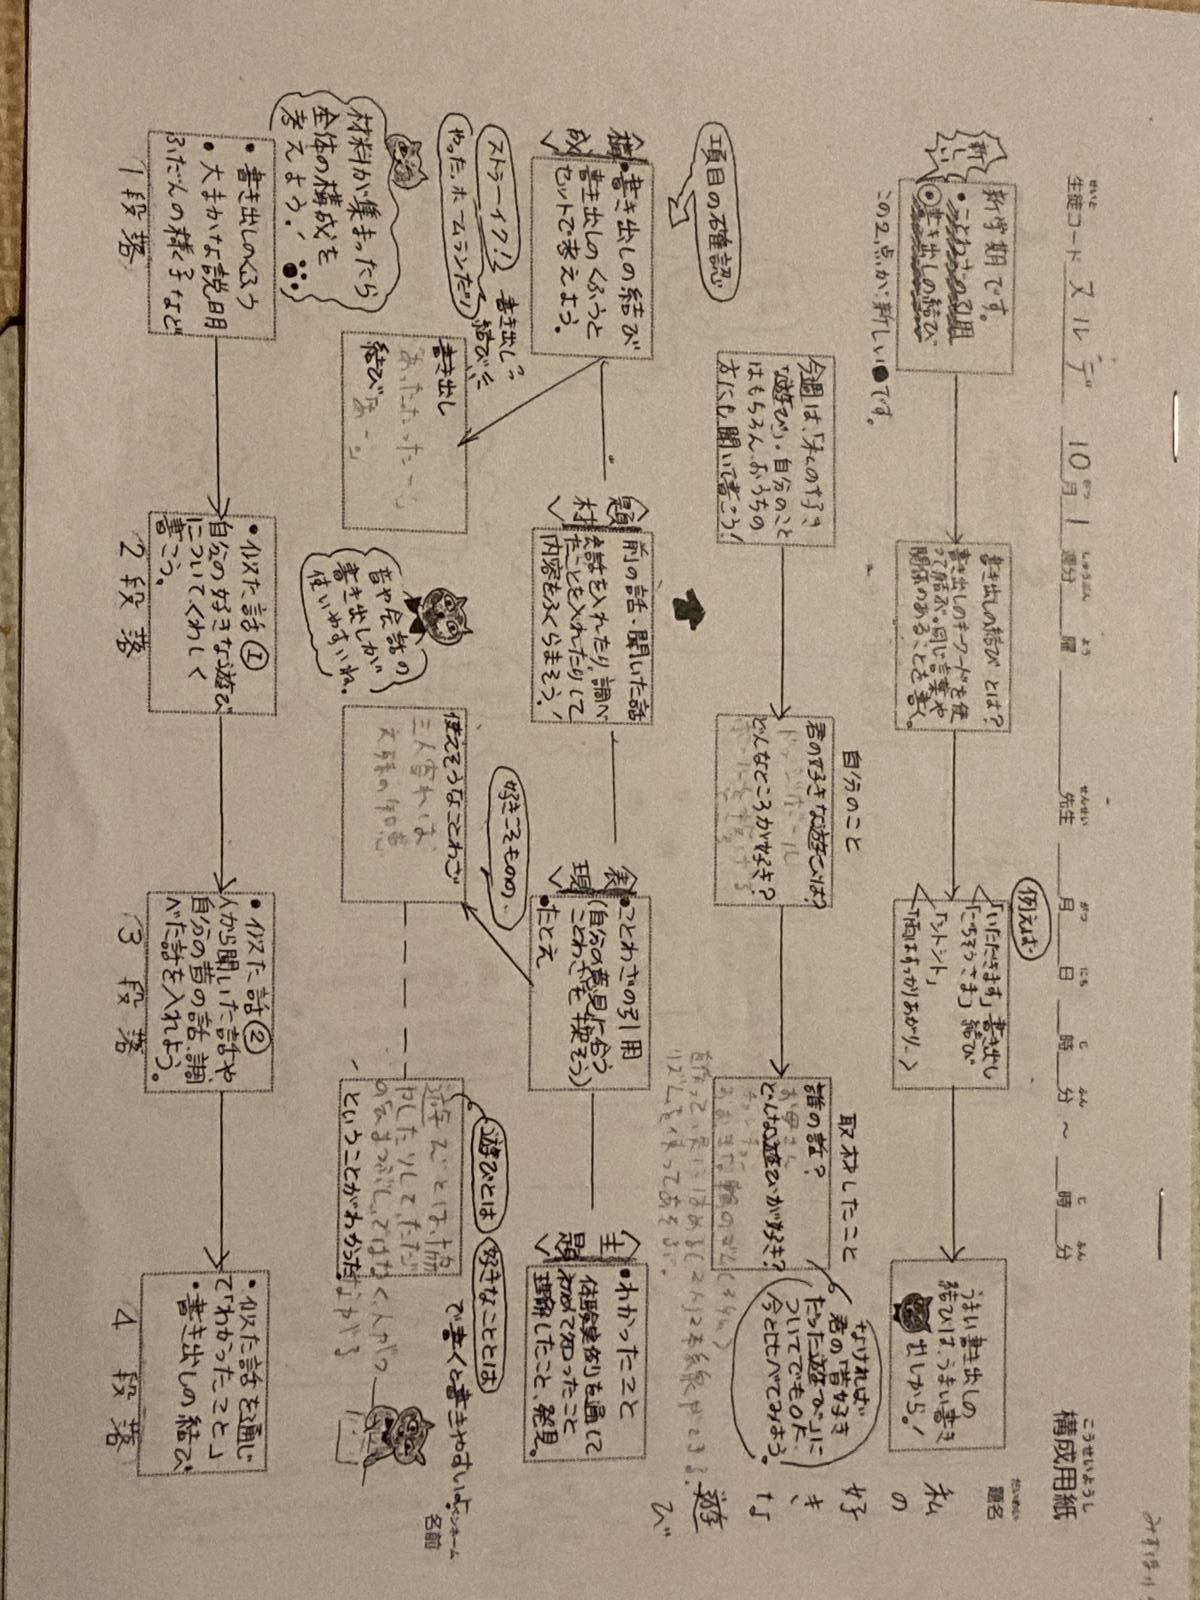 構成用紙
こうせいようし
生徒コード ヌルデ 10月1週分 曜 先生 月 日 時 分 ~ 時 分
せいと がつ しゅうぶん よう せんせい がつ にち じ ふん じ ふん
題名
だいめい
私の好きな遊び
新しい
新学期です。
・ことわざの引用
◎書き出しの結び
この2点が新しい●です。
書き出しの結びとは?
書き出しのキーワードを使
って結ぶ。同じ言葉や
関係のあることを書く。
例えば・
「いただきます」書き出し
「ごちそうさま」結び
「シトシト」
「雨はすっかりあがり~」
うまい書き出しの
結びは、うまい書き
出しから!
今週は、「私の好き
な遊び」。自分のこと
はもちろん、おうちの
方にも聞いて書こう!
自分のこと
君の好きな遊びは?
ドッジボール
どんなところが好き?
取材したこと
誰の話?
お母さん
どんな遊びが好き?
なければ
君の、「昔好き
だった遊び」に
ついてでもOK.
今と比べてみよう。
項目の確認
構成
・書き出しの結び
書き出しのくふうと
セットで考えよう。
題材
前の話・聞いた話
会話を入れたり、調べ
たことを入れたりして
内容をふくらまそう!
表現
・ことわざの引用
(自分の意見に合う
ことわざを探そう)
・たとえ
主題
・わかったこと
体験実例を通して
初めて知ったこと
理解したこと、発見。
ストラーイク!
やった、ホームランだ!
書き出し?
結び
書き出し
結び
音や会話の
書き出しが
使いやすいね。
好きこそものの・
使えそうなことわざ
三人寄れば
文殊の知恵
遊びとは
好きなこととは
で書くと書きやすいよ
遊びとは、協
力したりして、ただ
ということがわかった。
ペンネーム
名前
材料が集まったら
全体の構成を
考えよう!
・書き出しのくふう
・大まかな説明
ふだんの様子など
1段落
・似た話①
自分の好きな遊び
についてくわしく
書こう。
2段落
・似た話②
人から聞いた話や
自分の昔の話、調
べた話を入れよう。
3段落
・似た話を通じ
て「わかったこと」
・書き出しの結び
4段落